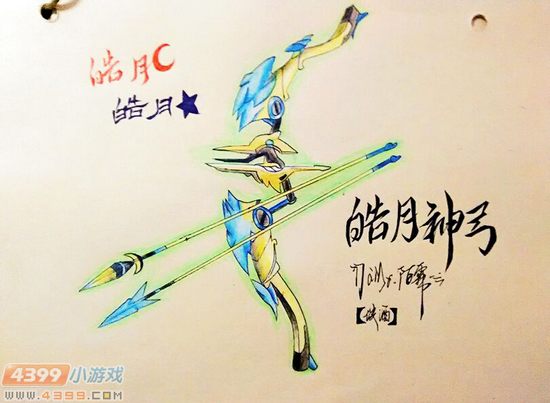 皓月
皓月
皓月神弓
4399小游戏
www.4399.com